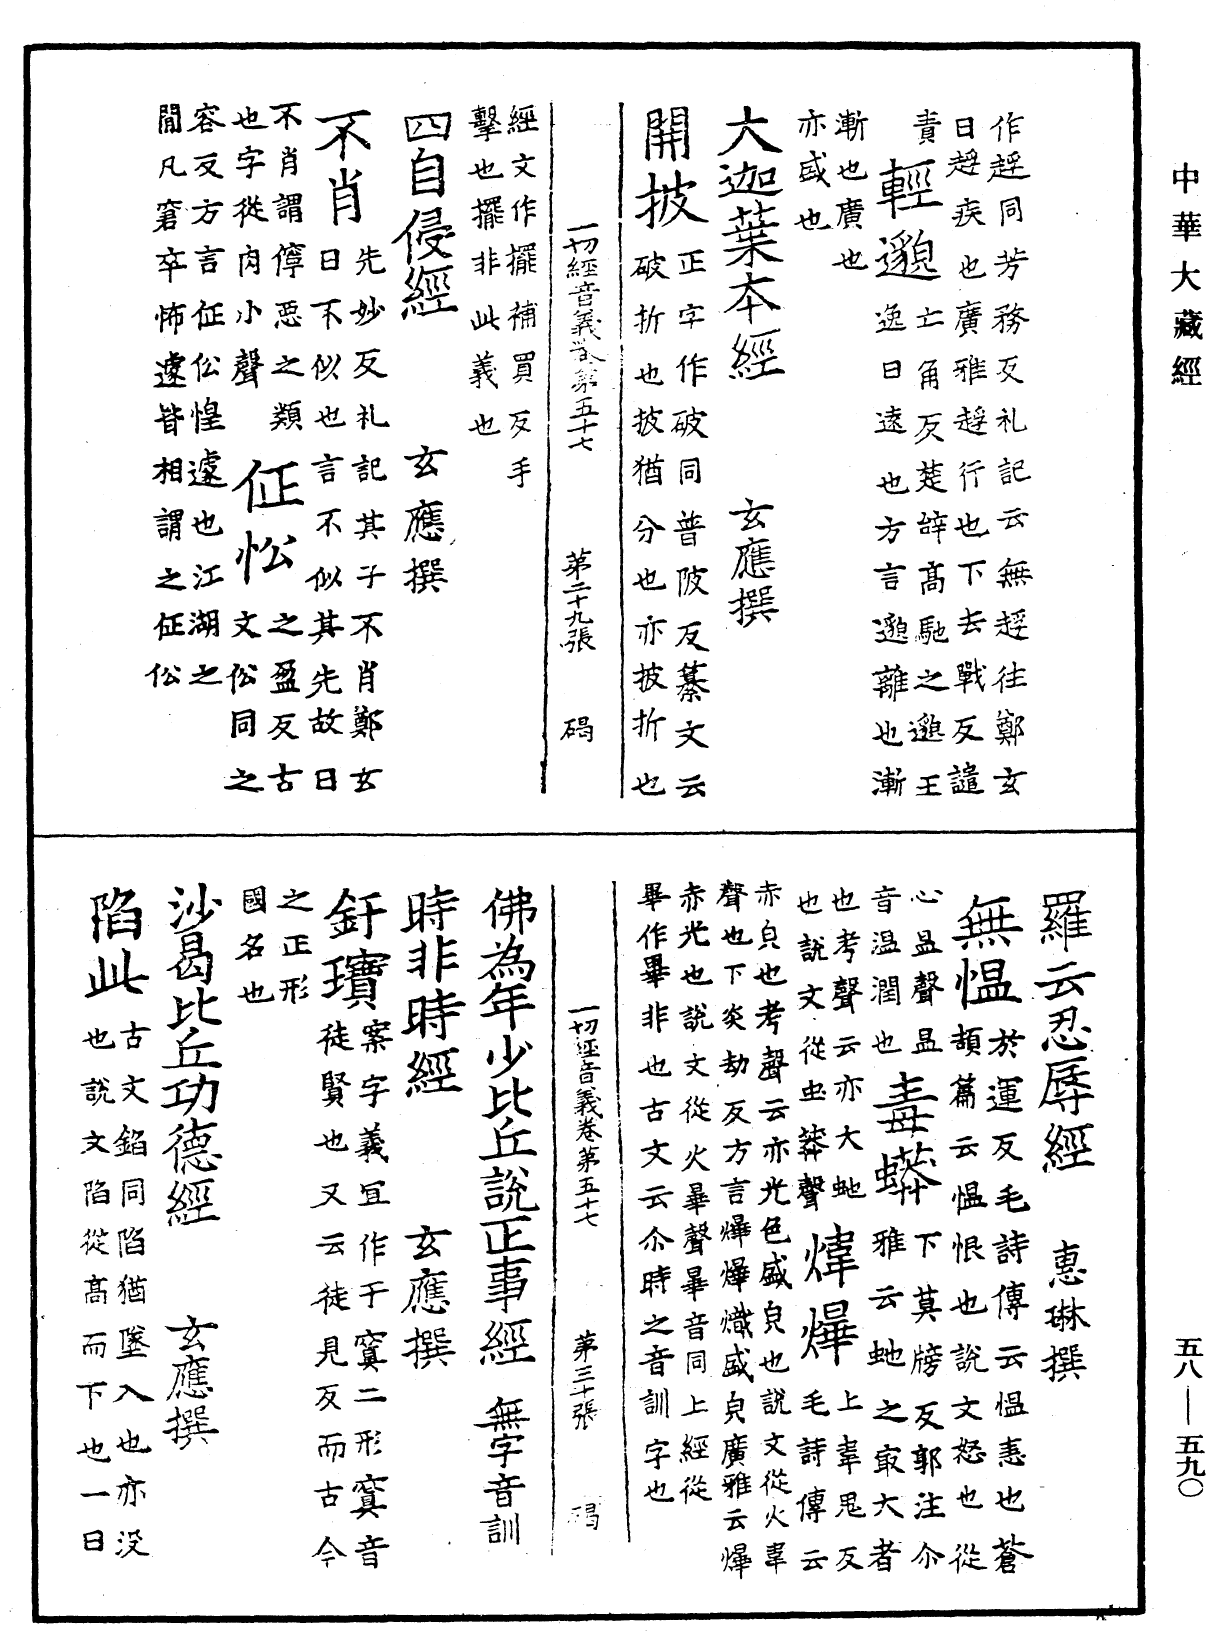 中華大藏經
作䞯同芳務反礼記云無䞯往鄭玄
日䞯疾也廣雅䞯行也下去戰反譴
責
輕邈
亡角反楚辭髙馳之邈邈王
逸曰遠也方言邈離也漸
漸也廣也
亦盛也
大迦葉本經
玄應撰
開披
正字作破同普陂反纂文云
破折也披猶分也亦披折也
一切經音義卷第五十七 第二十九張 碣
經文作擺補買反手
擊也擺非此義也
四自侵經 玄應撰
不肖
先妙反礼記其子不肖鄭玄
曰不似也言不似其先故曰
不肖謂儜惡之類
也字從肉小聲
怔忪
之盈反古
文伀同之
容反方言怔伀惶遽也江湖之
閒凡窘卒怖遽皆相謂之怔伀
羅云忍辱經 惠琳撰
無愠
於運反毛詩傳云愠恚也蒼
頡篇云愠恨也說文怒也從
心昷聲昷
音温潤也
毒蟒
下莫牓反郭注尒
雅云虵之㝡大者
也考聲云亦大虵
也說文從虫莽聲
煒爗
上韋鬼反
毛詩傳云
赤皃也考聲云亦光色盛皃也說文從火韋
聲也下炎劫反方言爗爗熾盛皃廣雅云爗
赤光也說文從火曅聲曅音同上經從
畢作㷸非也古文云尒時之音訓字也
一切經音義卷第五十七 第三十張 碣
佛為年少比丘說正事經 無字音訓
時非時經 玄應撰
釬䥧
案字義冝作于窴二形窴音
徒賢也又云徒見反而古今
之正形
國名也
沙曷比丘功德經 玄應撰
陷此
古文錎同陷猶墜入也亦没
也說文陷從髙而下也一曰
五八—五九〇